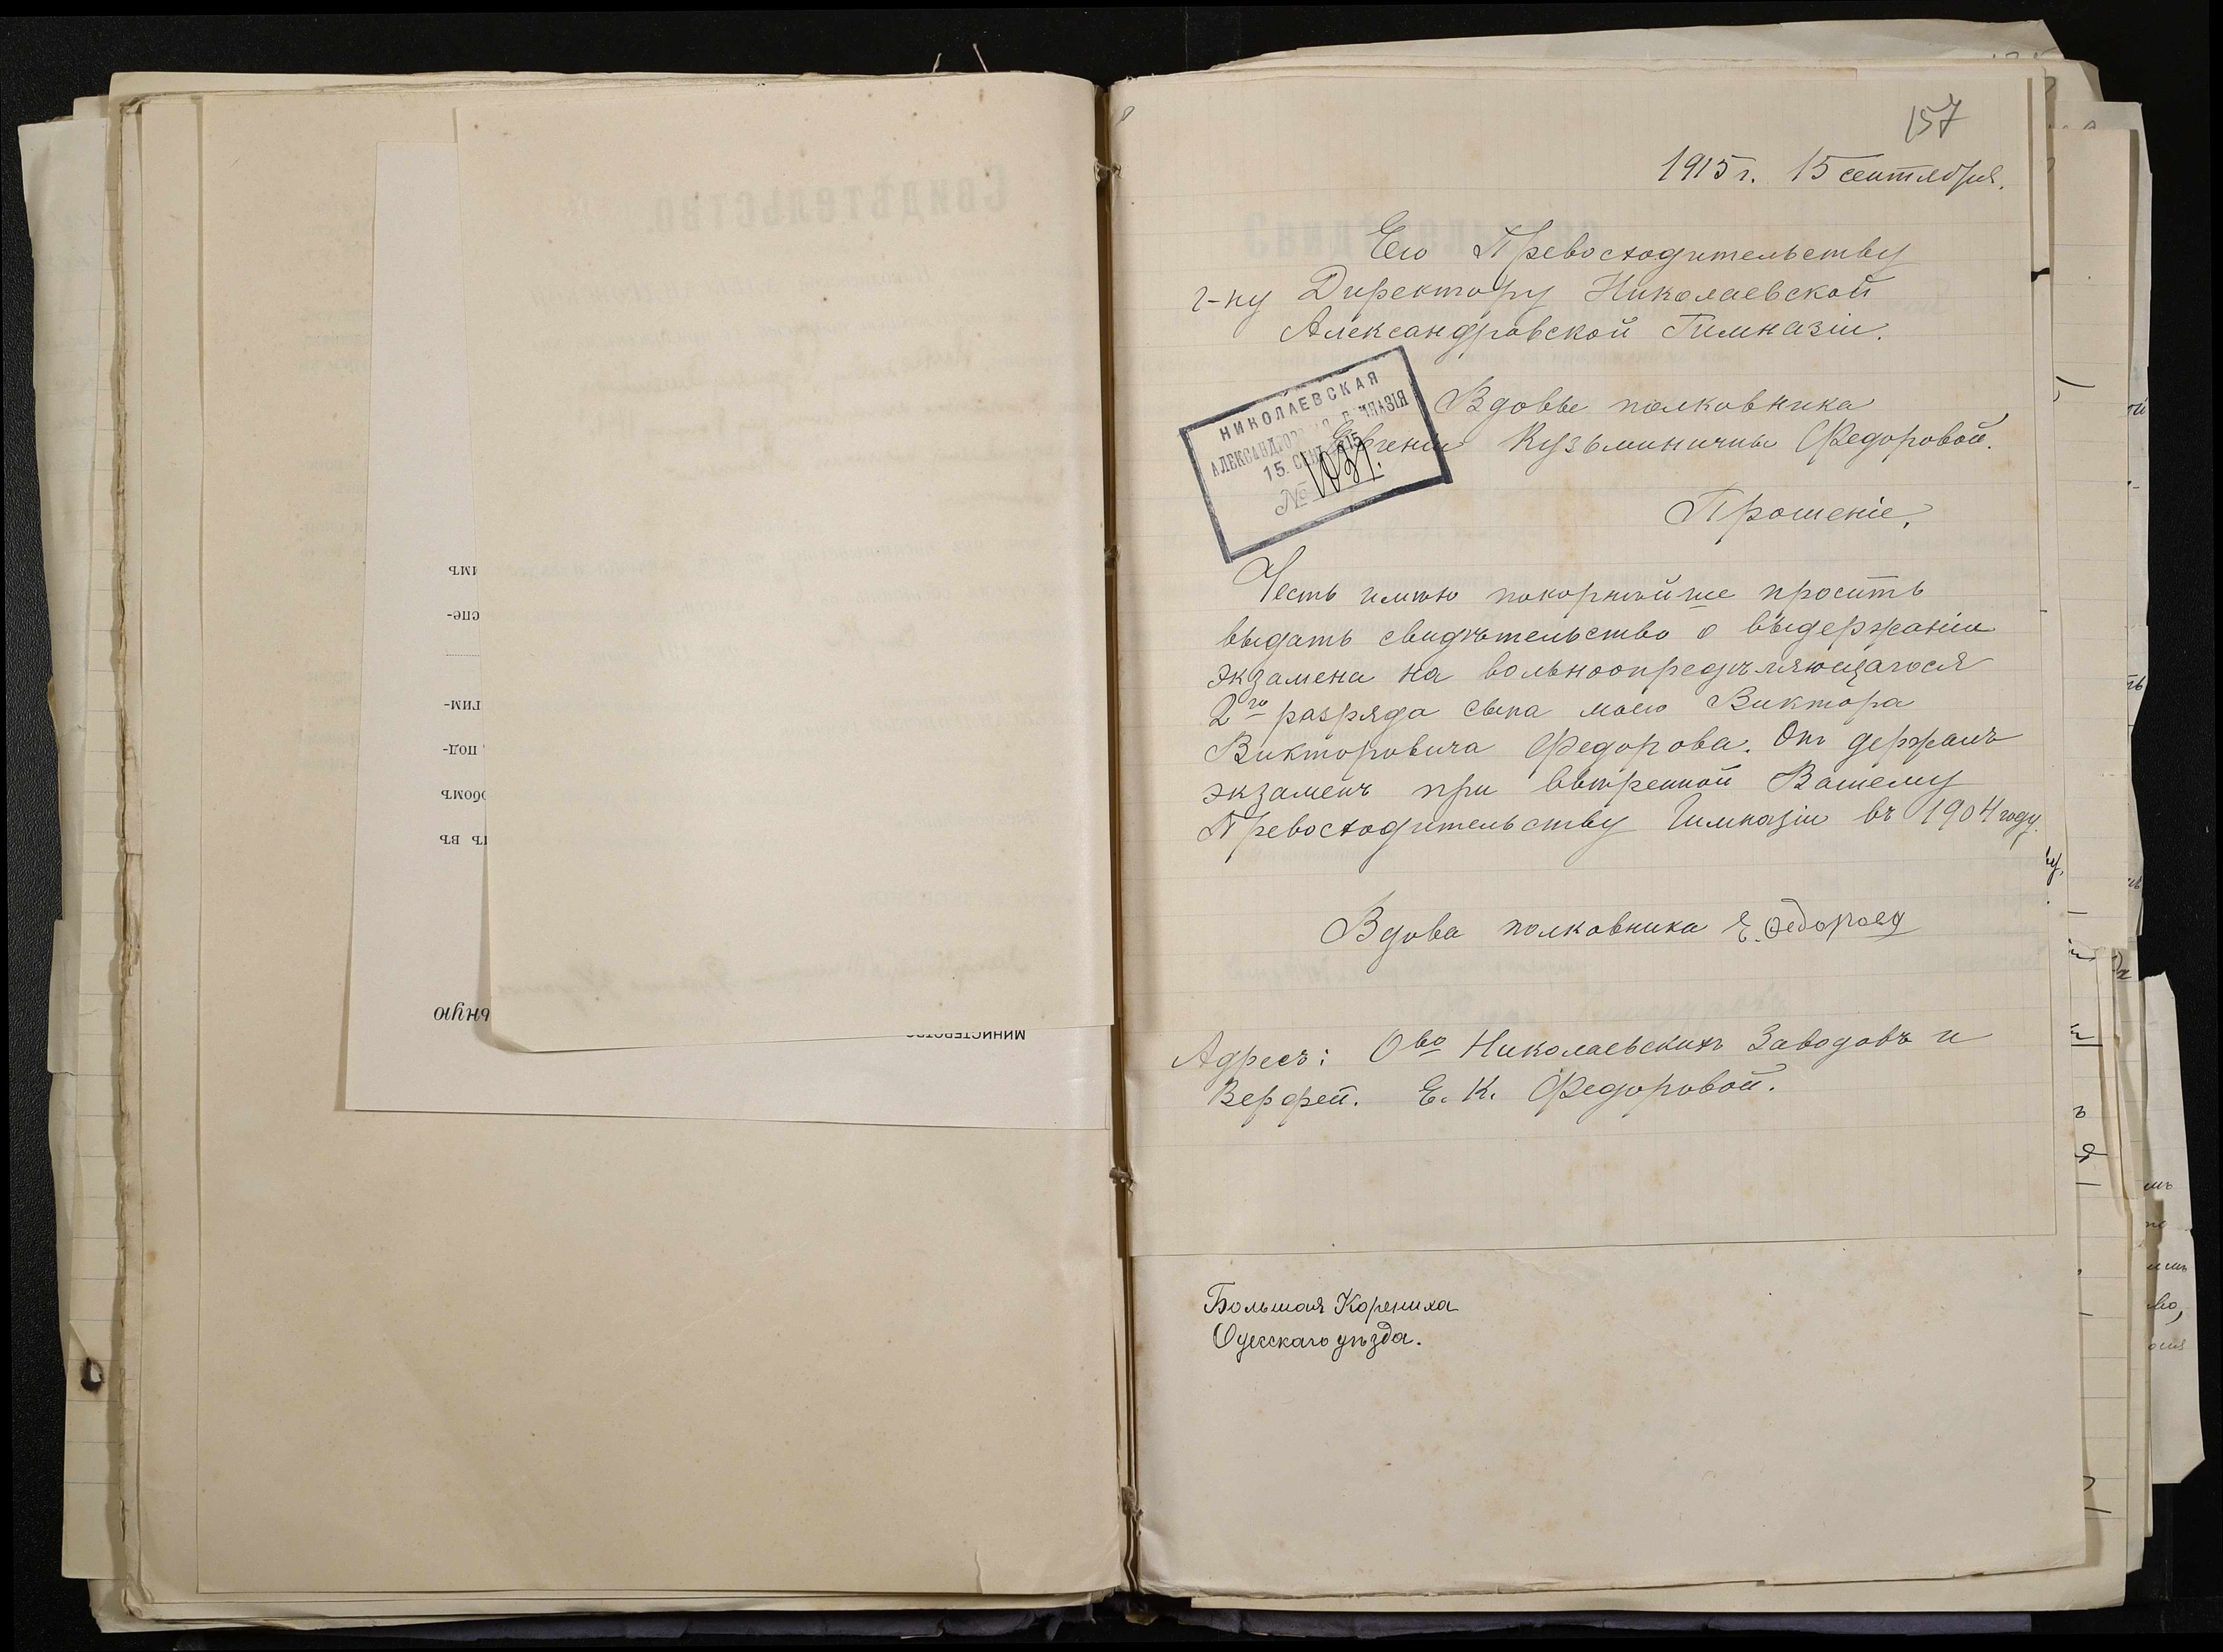 157
1915 г. 15 сентября.
Его Превосходительству
г-ну Директору Николаевской
Александровской Гимназіи.
НИКОЛАЕВСКАЯ
15. СЕН. 1915
№
Вдовы полковника
Евгеніи Кузьминичны Федоровой.
Прошеніе.
Честь имѣю покорнѣйше просить
выдать свидѣтельство о выдержаніи
экзамена на вольноопредѣляющагося
2го разряда сына моего Виктора
Викторовича Федорова. Онъ держалъ
экзаменъ при ввѣренной Вашему
Превосходительству Гимназіи въ 1904 году.
Вдова полковника Е. Федорова
Адресъ: Ово Николаевскихъ Заводовъ и
Верфей. Е. К. Федоровой.
Большая Корениха
Одесскаго уѣзда.
имъ
спе-
гим-
под-
обомъ
ть въ
ьную
Свидѣтельство.